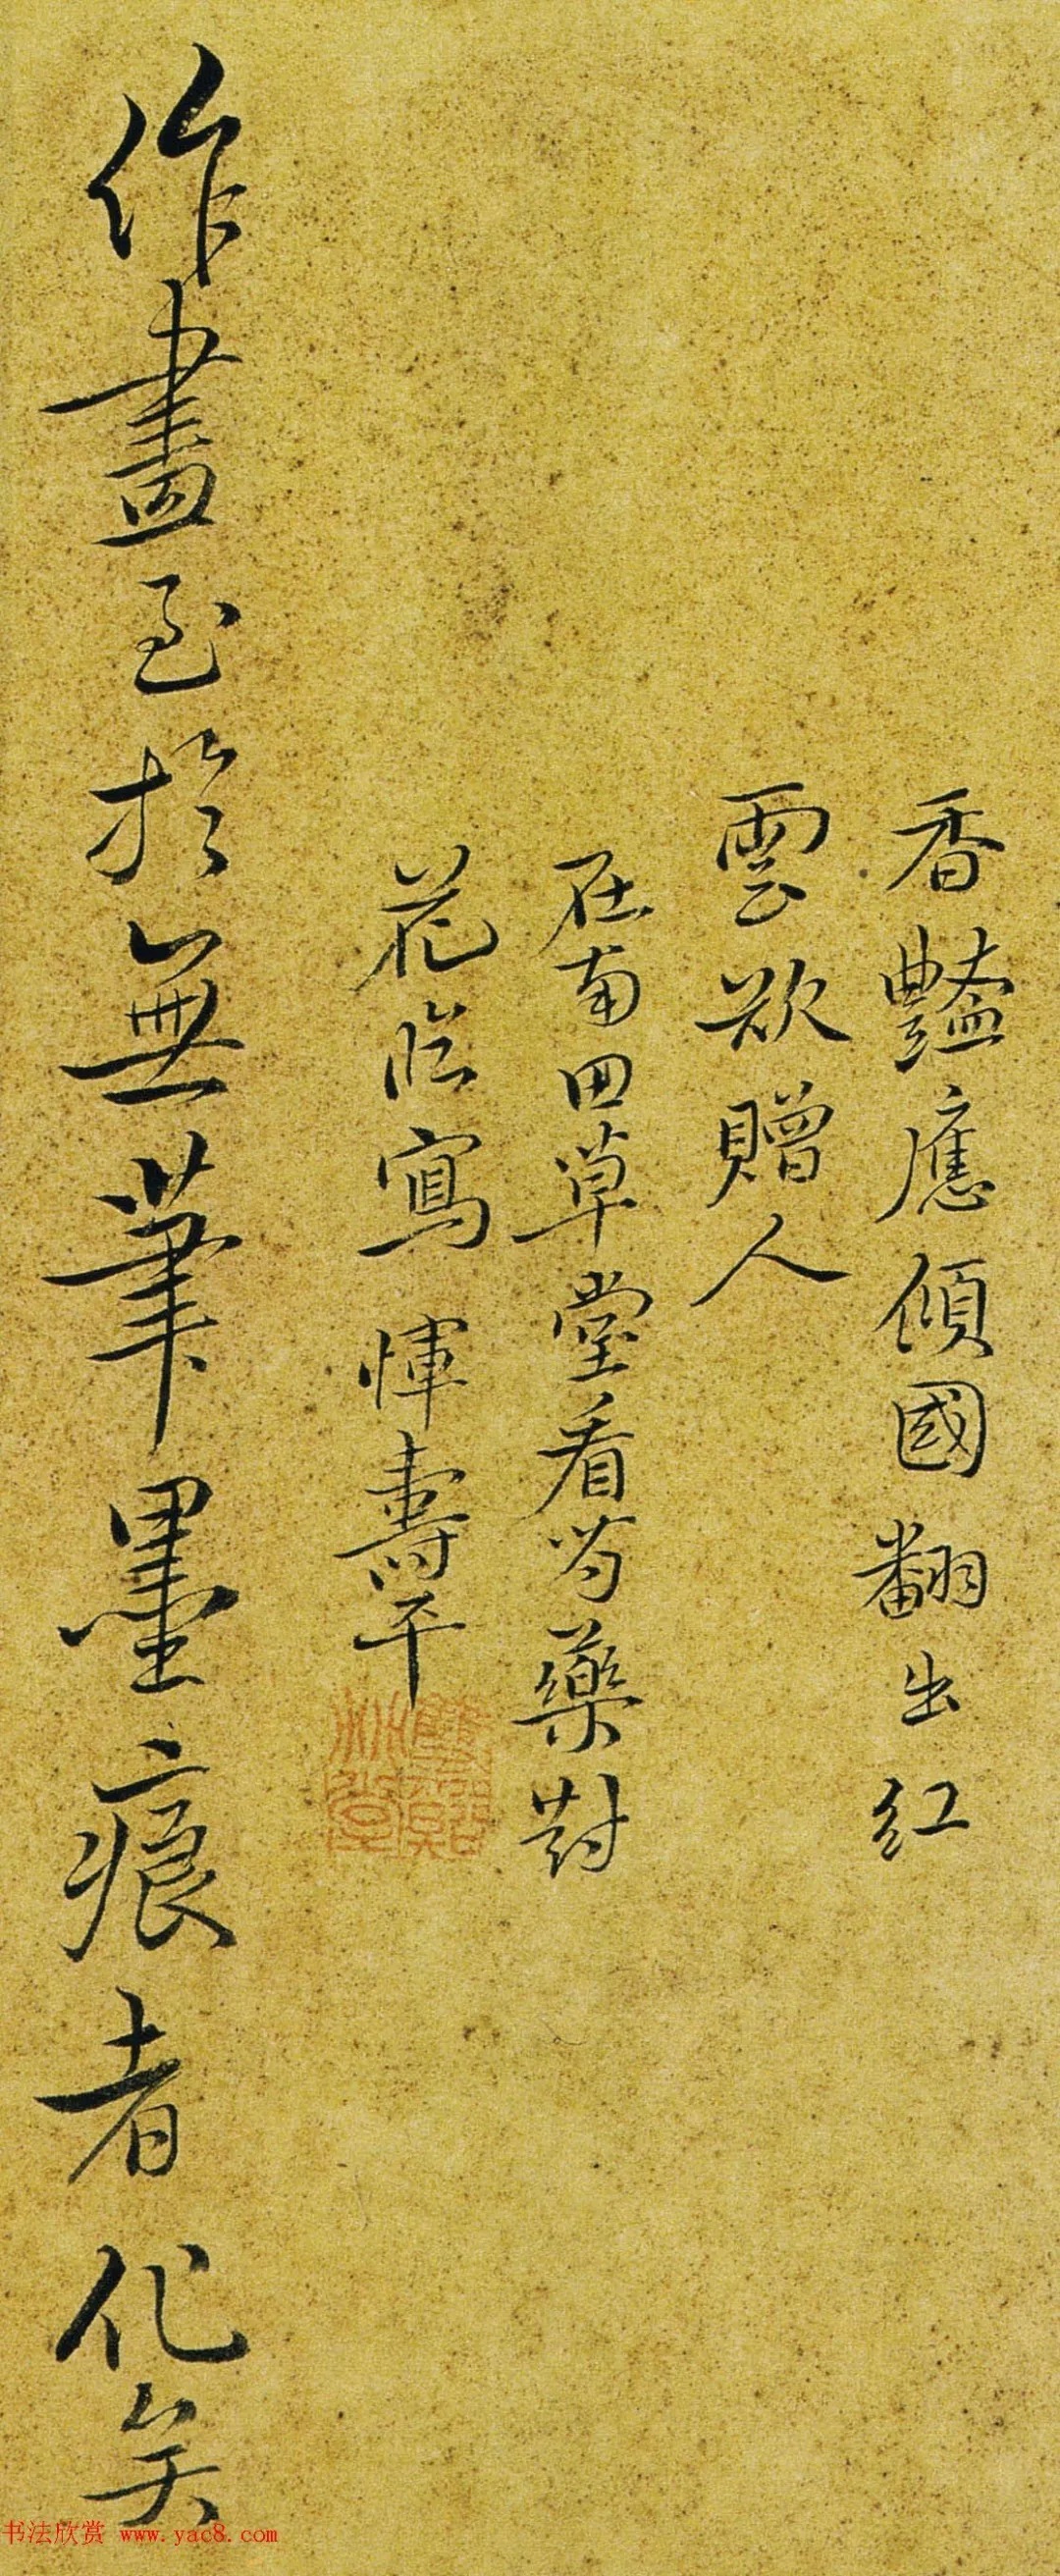 香豔應傾國翻出红
雲欲贈人
在南田草堂看芍藥對
花臨寫 惲壽平
作畫至於無筆墨痕者化矣
书法欣赏 www.yac8.com